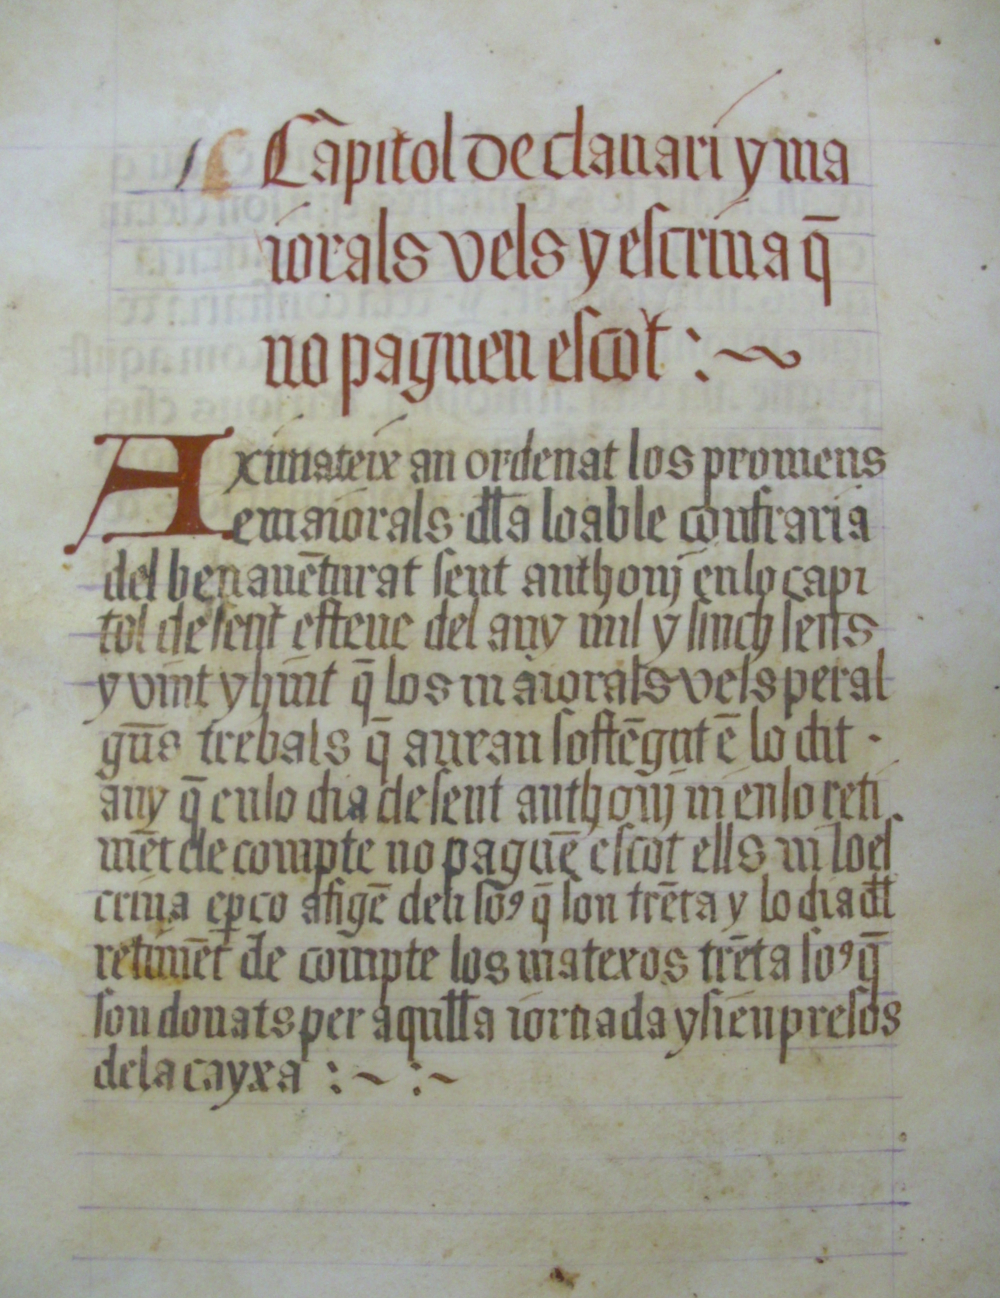 Cāpitol de clauari y ma
iorals vels y escriua q̄
no paguen escot : ~
Aximateix an ordenat los promens
e maiorals dlla loable confraria
del benauēturat sent anthonj enlo capi
tol de sent esteue del any mil y sinch sens
y vint y hint q̄ los maiorals vels per al
gūs trebals q̄ auran sostēgut ē lo dit ·
any q̄ enlo dia de sent anthonij ni enlo reti
mēt de compte no paguē escot ells ni lo es
criua e p̱ ço afigē deli soꝰ q̄ son trēta y lo dia dll
retimēt de compte los matexos trēta soꝰ q̄
son donats per aquilla iornada y sien presos
de la cayxa : ~ : ~